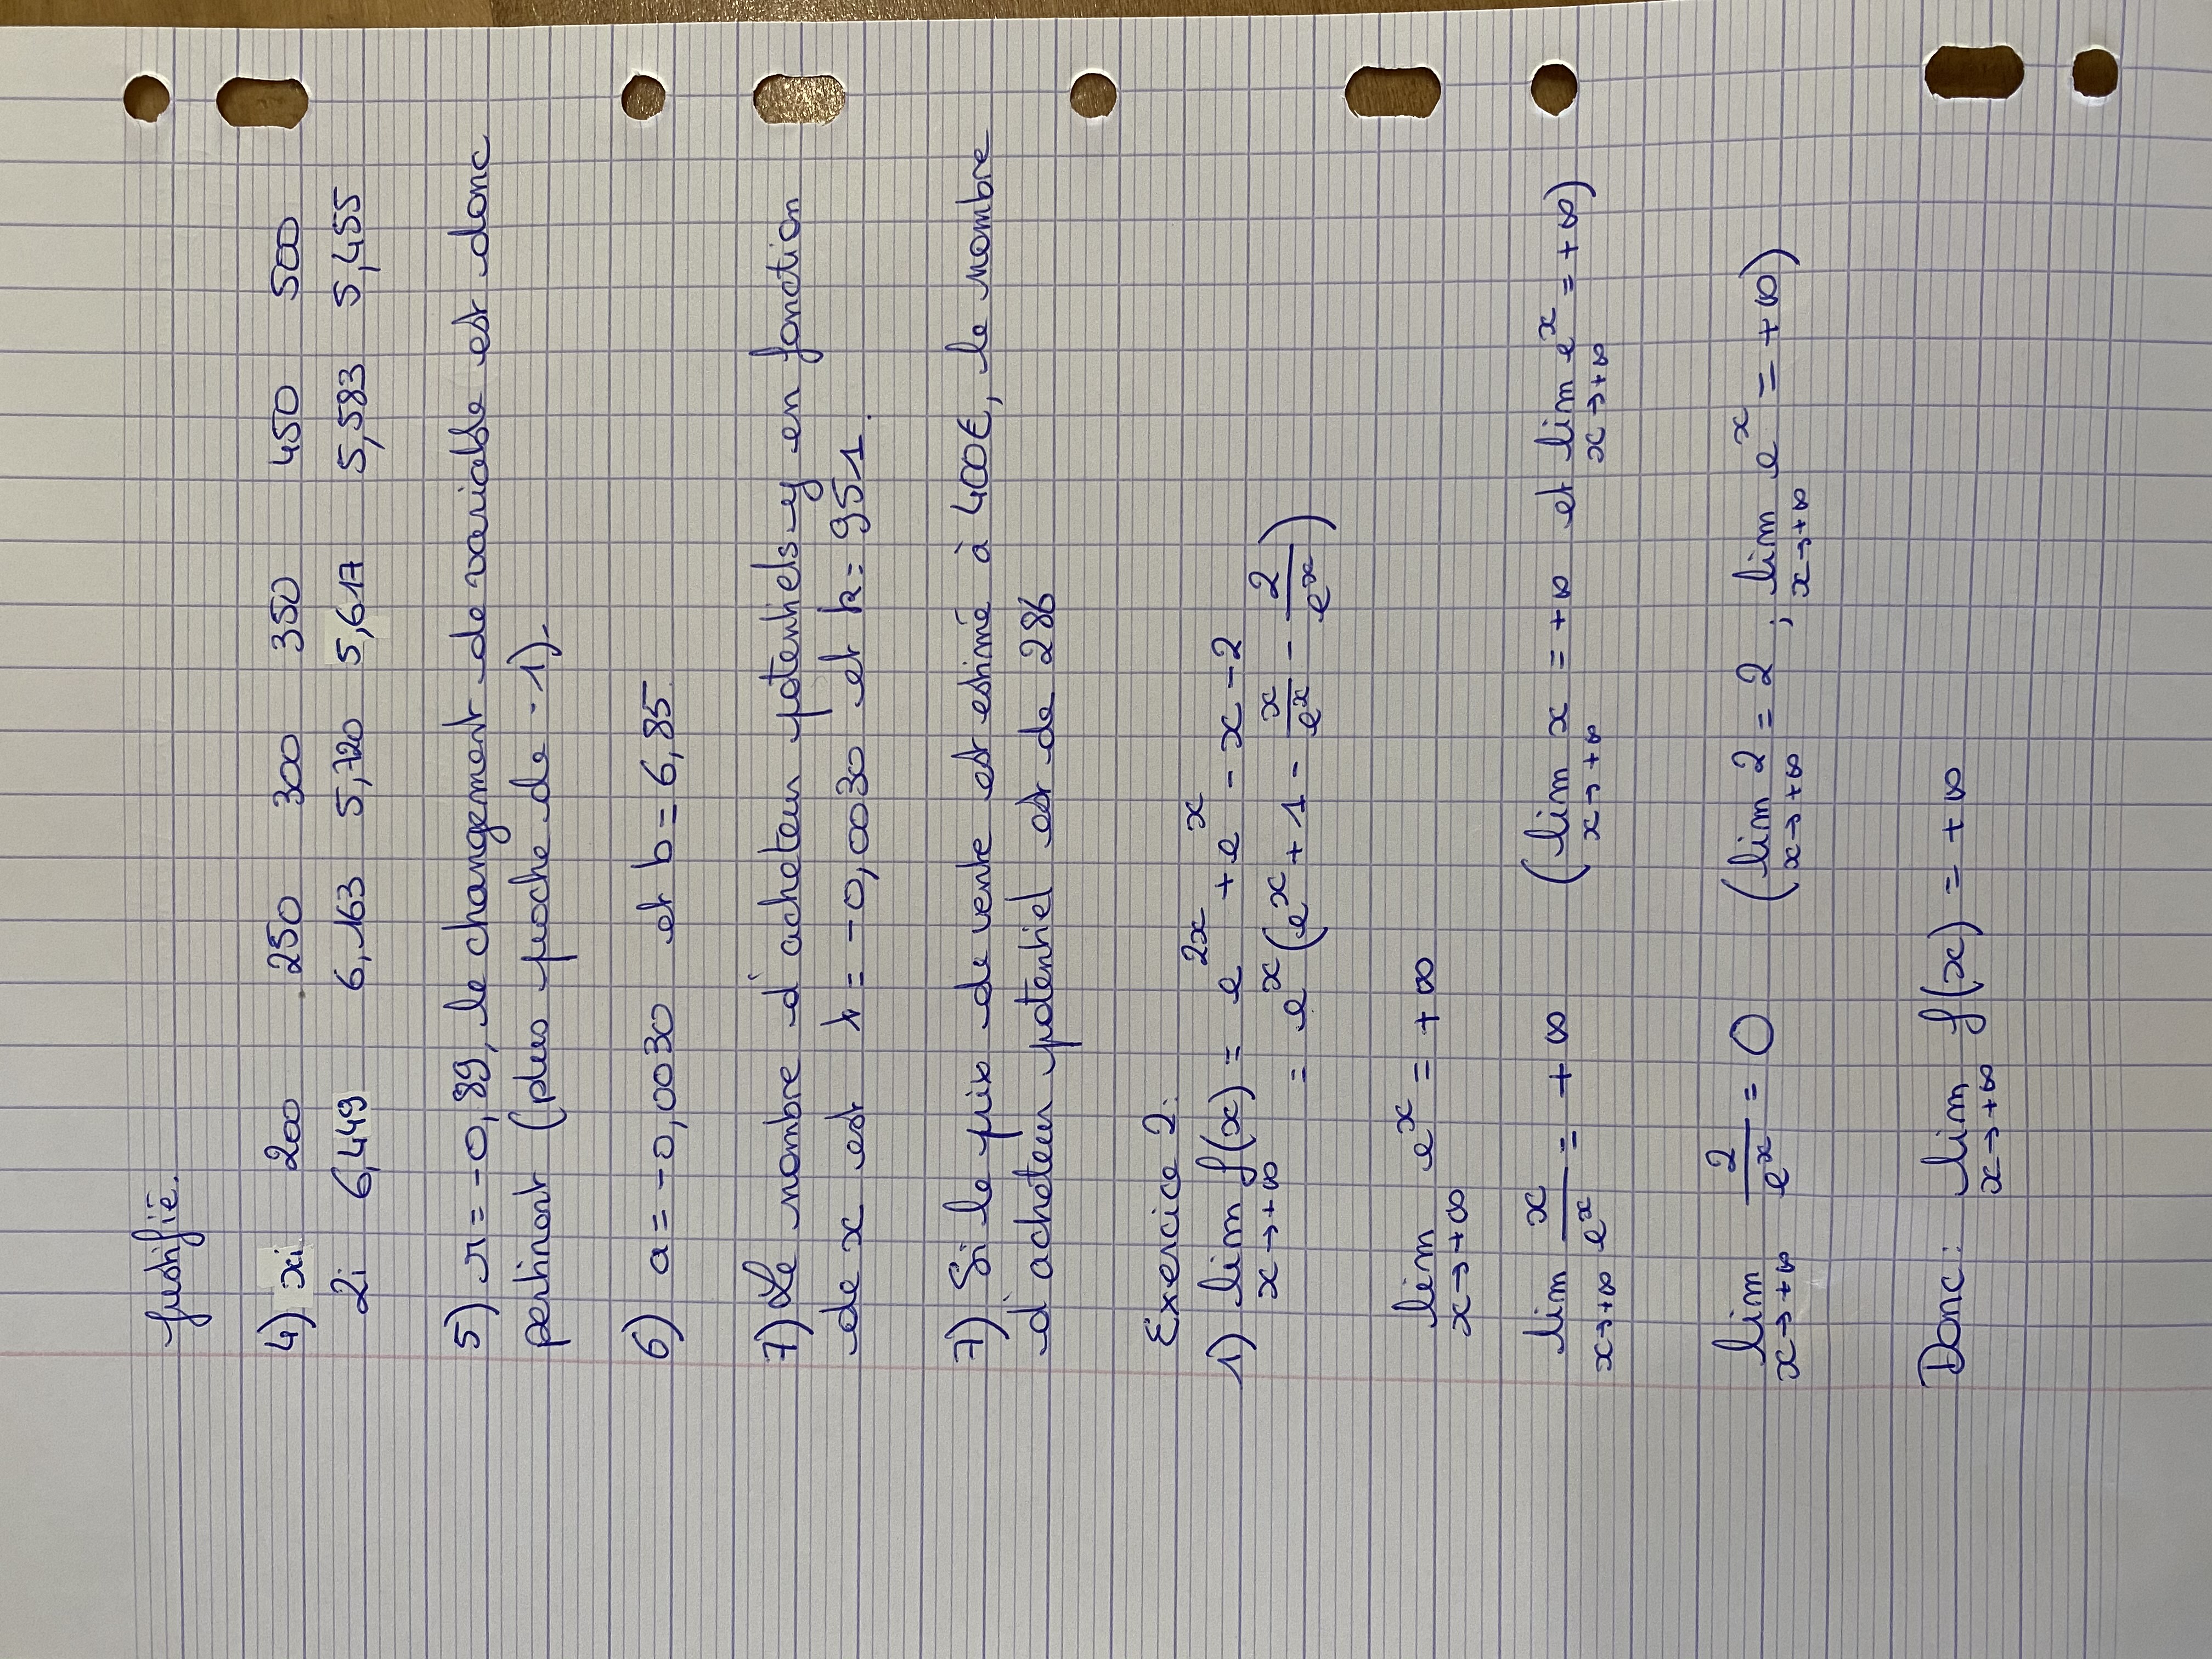 justifié.
4) xi 200 250 300 350 450 500
zi 6,449 6,163 5,720 5,617 5,583 5,455
5) r = -0,89, le changement de variable est donc
pertinent (plus proche de -1).
6) a = -0,0030 et b = 6,85
7) Le nombre d'acheteur potentiels y en fonction
de x est λ = -0,0030 et k = 951.
7) Si le prix de vente est estimé à 400€, le nombre
d'acheteur potentiel est de 286
Exercice 2:
1) lim x→+∞ f(x) = e^{2x} + e^x - x - 2
= e^x (e^x + 1 - x/e^x - 2/e^x)
lim x→+∞ e^x = +∞
lim x→+∞ x/e^x = +∞ (lim x→+∞ x = +∞ et lim x→+∞ e^x = +∞)
lim x→+∞ 2/e^x = 0 (lim x→+∞ 2 = 2 ; lim x→+∞ e^x = +∞)
Donc: lim x→+∞ f(x) = +∞